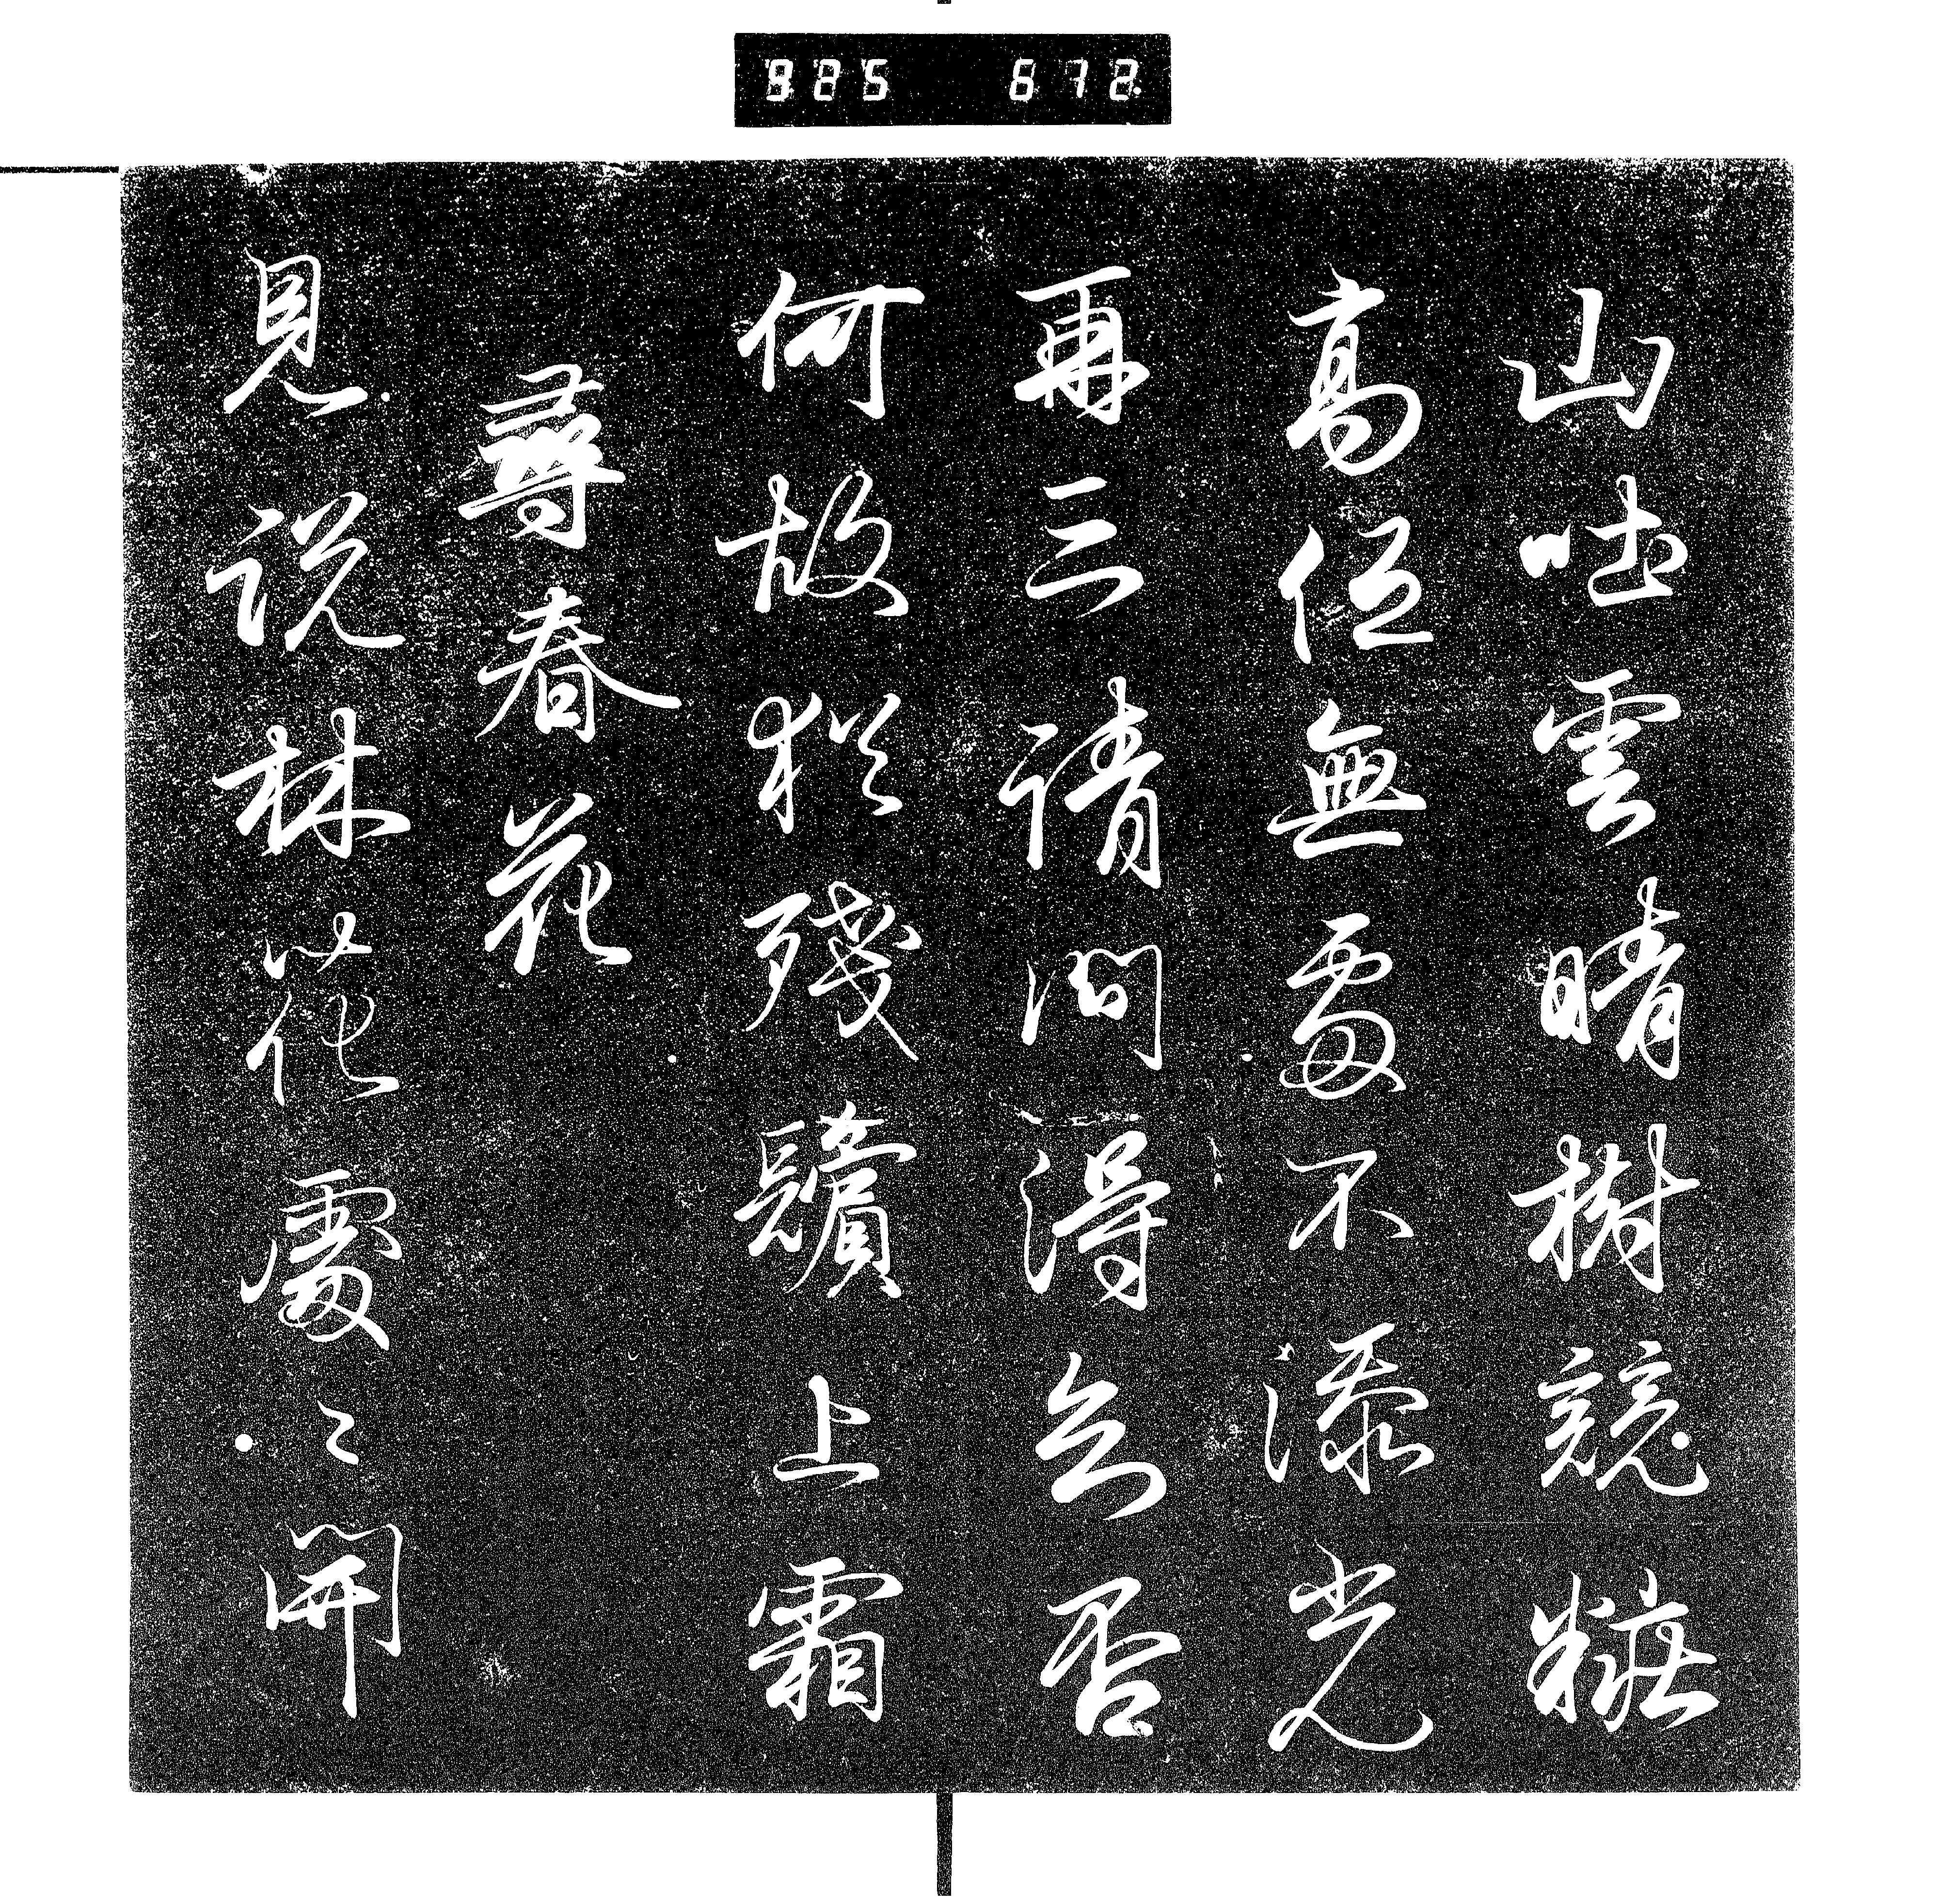 825 672
山吐雲晴樹競粧
高低無處不添光
再三請問得否
何故猶殘鬢上霜
尋春花
見説林花處々開